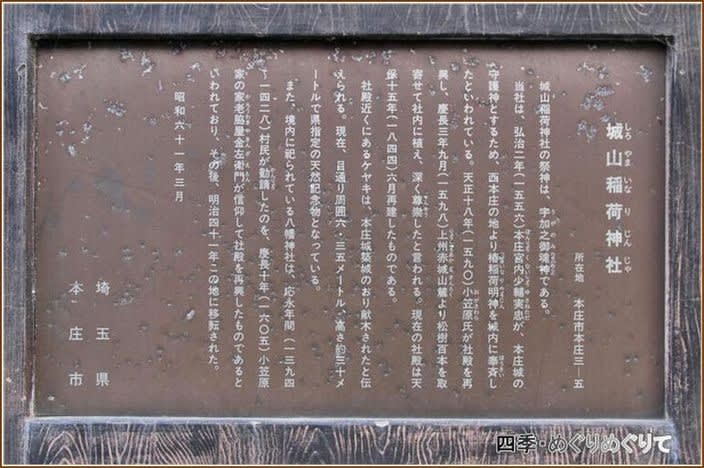 城山稲荷神社
しろやまいなりじんじゃ
所在地 本庄市本庄三―五
城山稲荷神社の祭神は、宇加之御魂神である。
当社は、弘治二年(一五五六)本庄宮内少輔実忠が、本庄城の
守護神とするため、西本庄の地より椿稲荷明神を城内に勧斉し
たといわれている。天正十八年(一五九〇)小笠原氏が社殿を再
興し、慶長三年九月(一五九八)上州赤城山麓より松樹百本を取
寄せて社内に植え、深く尊崇したと言われる。現在の社殿は天
保十五年(一八四四)六月再建したものである。
社殿近くにあるケヤキは、本庄城築城のおり献木されたと伝
えられる。現在、目通り周囲六・三五メートル、高さ約三十メ
ートルで県指定の天然記念物となっている。
また、境内に祀られている八幡神社は、応永年間(一三九四
〜一四二八)村民が勧請したのを、慶長十年(一六〇五)小笠原
家の家老脇屋金左衛門が信仰して社殿を再興したものであると
いわれており、その後、明治四十一年この地に移転された。
昭和六十一年三月
埼玉県
本庄市
四季・めぐりめぐりて